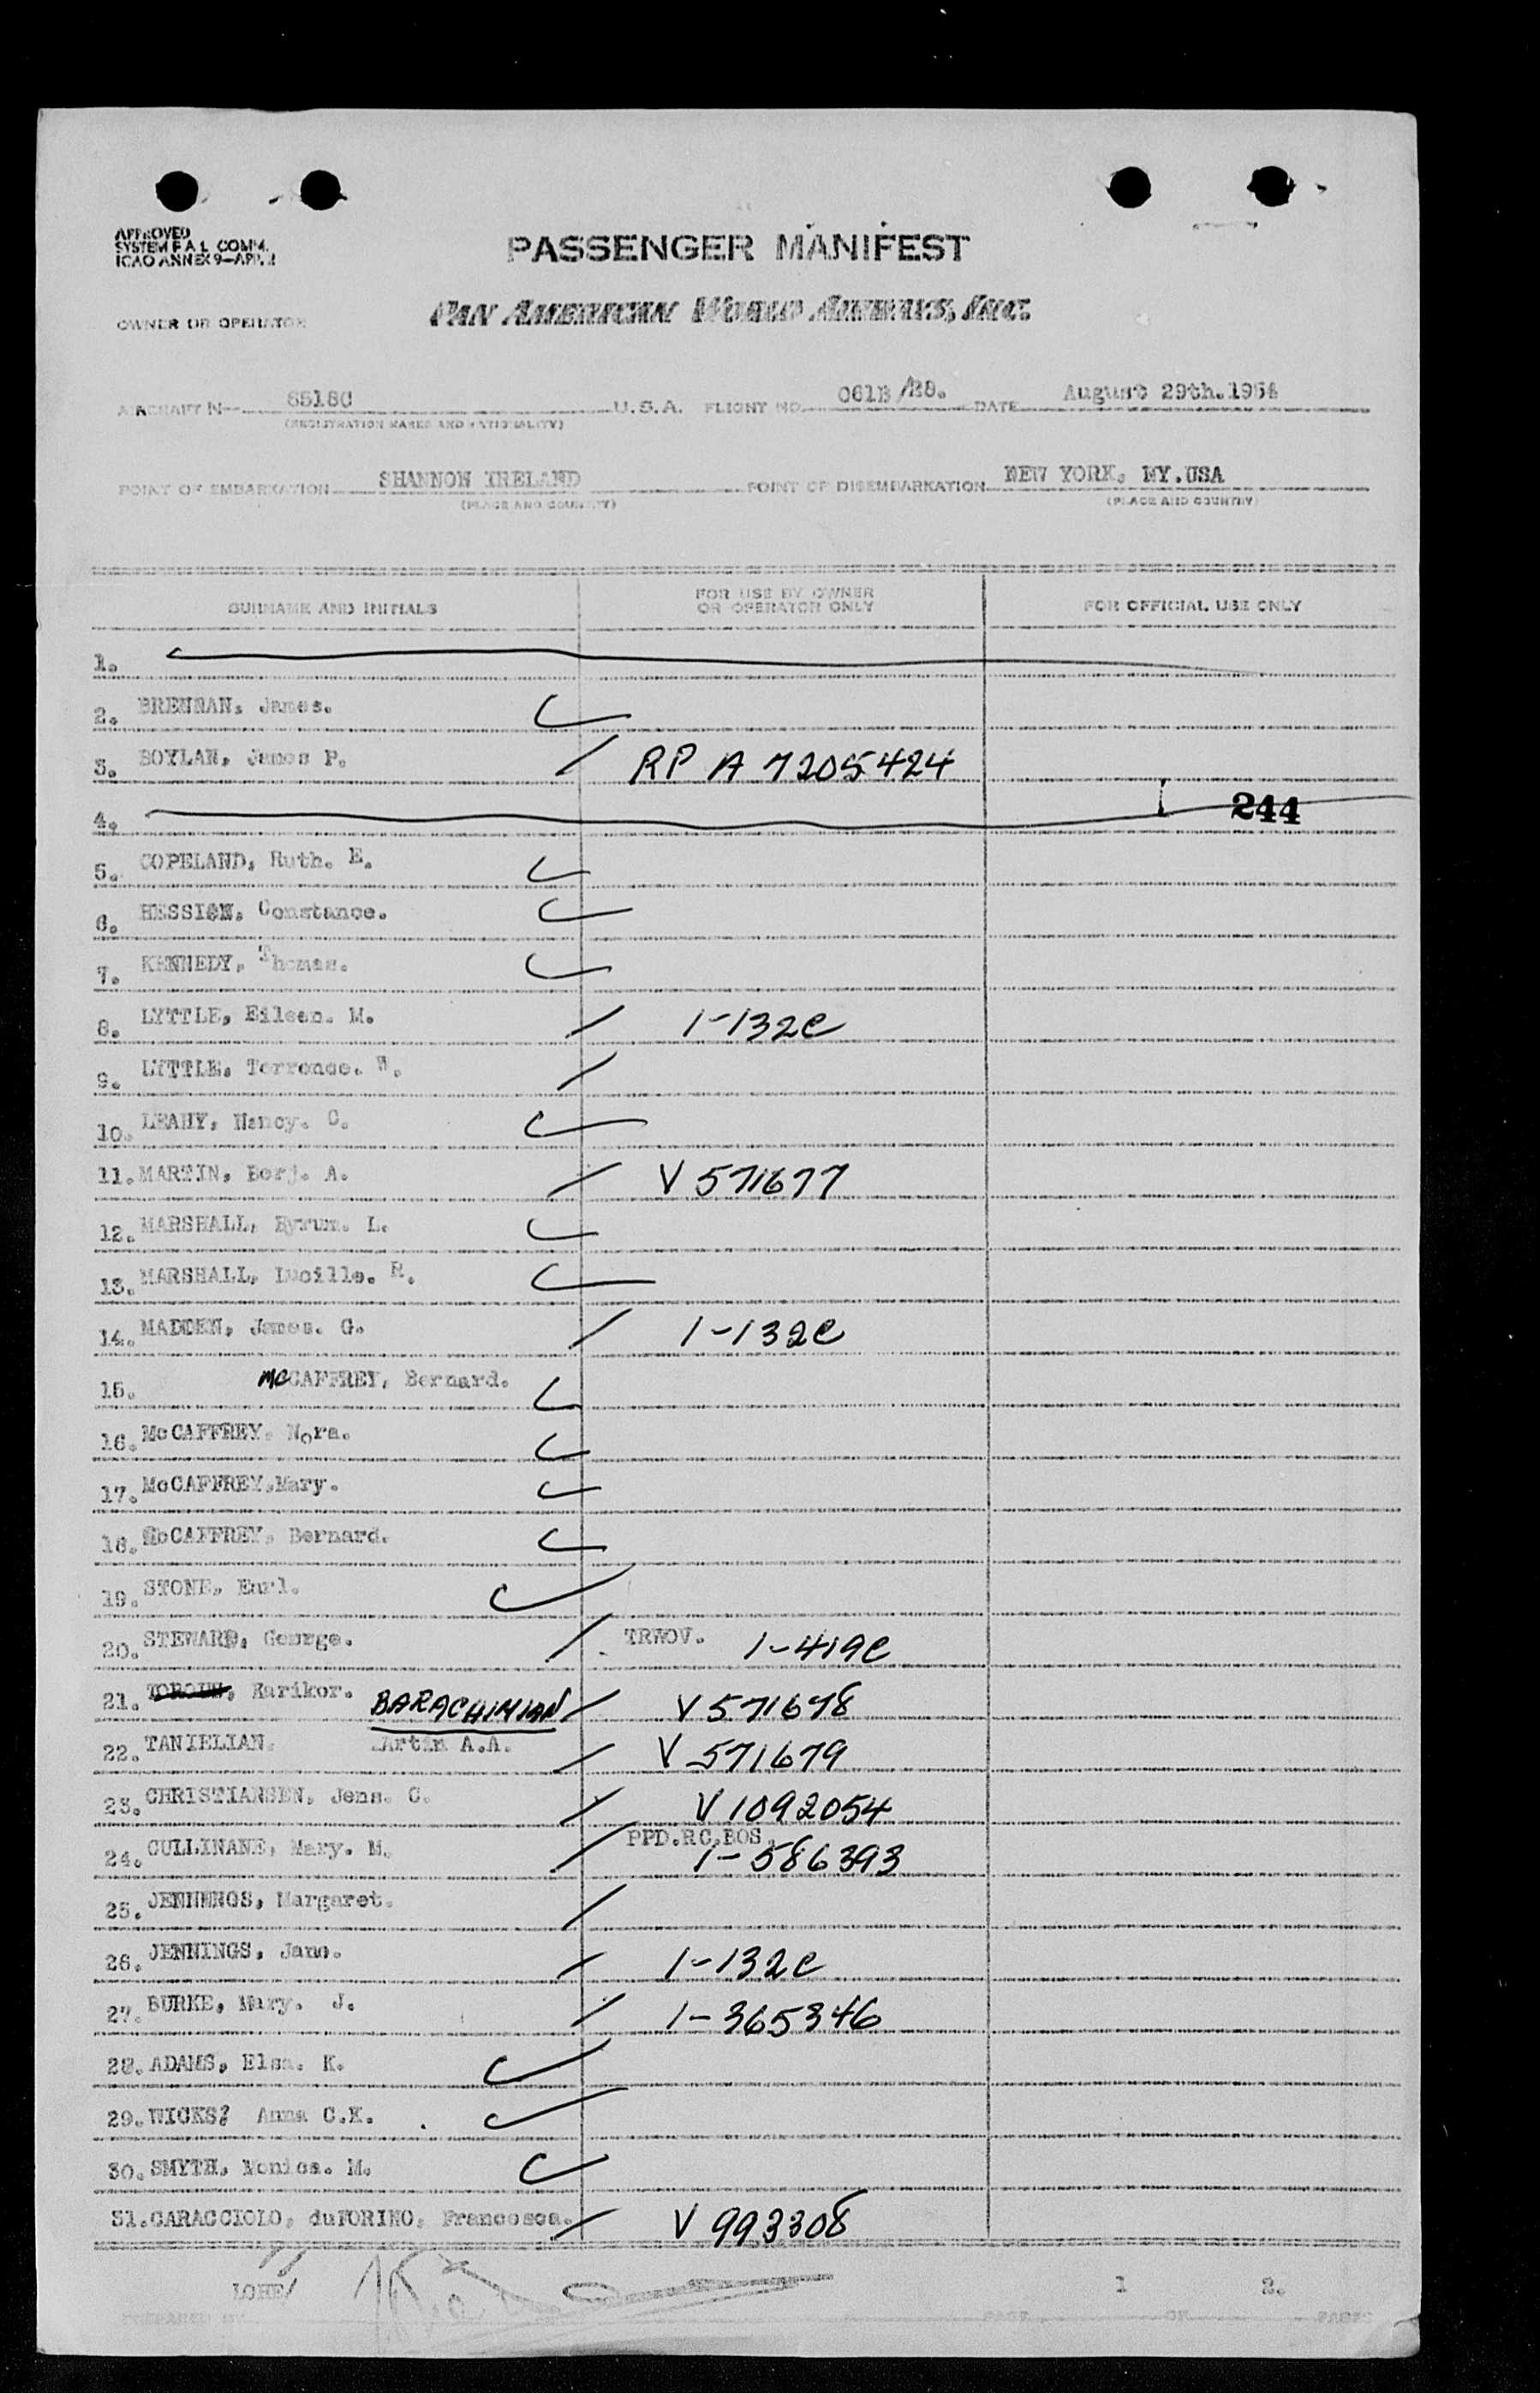 APPROVED
SYSTEM F.A.L. COMM.
ICAO ANNEX 9-APP.
PASSENGER MANIFEST
OWNER OR OPERATOR
PAN AMERICAN WORLD AIRWAYS, INC.
AIRCRAFT N- 88180 U.S.A. FLIGHT NO. 061B/28. DATE August 29th.1954
(REGISTRATION MARKS AND NATIONALITY)
POINT OF EMBARKATION SHANNON IRELAND POINT OF DISEMBARKATION NEW YORK, NY.USA
(PLACE AND COUNTRY) (PLACE AND COUNTRY)
SURNAME AND INITIALS FOR USE BY OWNER OR OPERATOR ONLY FOR OFFICIAL USE ONLY
1.
2. BRENNAN, James.
3. BOYLAN, James P. RP A 7205424
4. 244
5. COPELAND, Ruth. E.
6. HESSION, Constance.
7. KENNEDY, Thomas.
8. LYTTLE, Eileen. M. 1-132c
9. LYTTLE. Terrence. W.
10. LEAHY, Nancy. C.
11. MARTIN, Berj. A. V 571677
12. MARSHALL, Byrum. L.
13. MARSHALL, Lucille. R.
14. MADDEN, James. G. 1-132c
15. McCAFFREY, Bernard.
16. McCAFFREY. Nora.
17. McCAFFREY,Mary.
18. McCAFFREY, Bernard.
19. STONE, Earl.
20. STEWARD, George. TRWOV. 1-419c
21. Karikor. BARACHIMIAN V 571678
22. TANIELIAN. Artin A.A. V 571679
23. CHRISTIANSEN, Jens. C. V 1092054
24. CULLINANE, Mary. M. PPD.RC.BOS. 1-586393
25. JENNENGS, Margaret.
26. JENNINGS, Jane. 1-132c
27. BURKE, Mary. J. 1-365346
28. ADAMS, Elsa. K.
29. WICKS? Anna C.K.
30. SMYTH, Monica. M.
31. CARACCIOLO, duTORINO, Francesca. V 993308
LOHE/ 1 2.
PREPARED BY PAGE OF PAGES